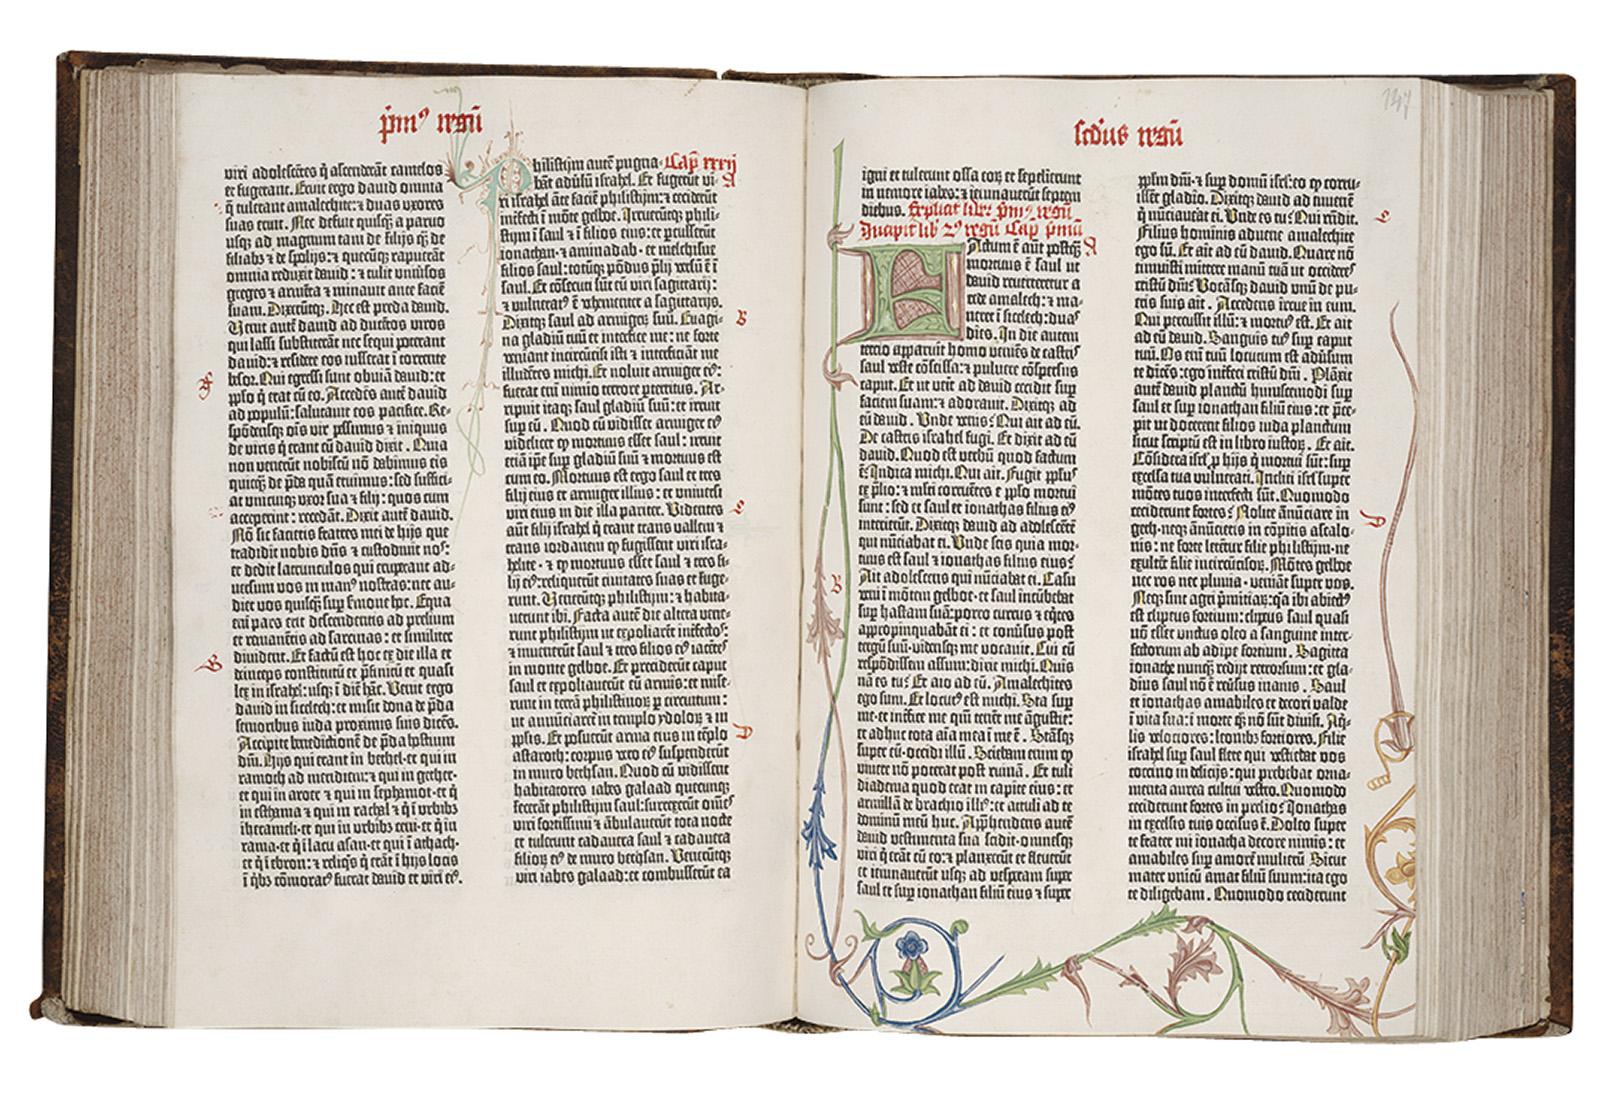 p̄m⁹ regū
viri adolescētes q̄ ascenderāt camelos
et fugerant. Eruit ergo david omnia
q̄ tulerant amalechite: ⁊ duas uxores
suas eruit. Nec defuit quisq̄ a parvo
usq̄ ad magnum tam de filijs q̄ de
filiabꝫ ⁊ de spolijs: ⁊ quecūqꝫ rapuerāt
omnia reduxit david: ⁊ tulit universos
greges ⁊ armēta ⁊ minavit ante faciē
suam. Dixerūtqꝫ. Hec est preda david.
Venit autē david ad ducētos viros
qui lassi substiterāt nec sequi poterant
david: ⁊ residere eos iusserat ī torrente
besor. Qui egressi sunt obviā david: et
pplō q̄ erat cū eo. Accedēs autē david
ad populū: salutavit eos pacifice. Re-
spōdensqꝫ oīs vir pessimus ⁊ iniquus
de viris q̄ erant cū david dixit. Quia
non venerūt nobiscū nō dabimus eis
quicq̄ de p̄da quā eruimus: sed suffici-
at unicuiqꝫ uxor sua ⁊ filij: quos cum
acceperint: recedāt. Dixit autē david.
Nō sic facietis fratres mei de hijs que
tradidit nobis dn̄s ⁊ custodivit nos:
et dedit latrunculos qui eruperant ad-
versum vos in man⁹ nostras: nec au-
diet vos quisq̄ sup̄ s̄mone hoc. Equa
eni pars erit descendentis ad prelium
et remanētis ad sarcinas: et similiter
divident. Et factū est hoc ex die illa et
deinceps constitutū et p̄finitū et quasi
lex in israhel: usqꝫ ī diē hāc. Venit ergo
david in sicelech: et misit dona de p̄da
senioribus iuda proximis suis dicēs.
Accipite benedictionē de p̄da hostium
dn̄i. Hijs qui erant in bethel · et qui in
ramoth ad meridiem: ⁊ qui in gether ·
et qui in aroer ⁊ qui in sephamot · et q̄
in esthama ⁊ qui in rachal ⁊ q̄ ī urbibꝫ
iherameli · et qui in urbibꝫ ceni · et q̄ in
rama · et q̄ ī lacu asan · et qui ī athach ·
et q̄ ī ebron: ⁊ reliq̄s q̄ erāt ī hijs locis
ī q̄bꝫ cōmorat⁹ fuerat david et viri ei⁹.
Philistijm autē pugna- Cap̄ xxxj
bāt adūsū israhel. Et fugerūt vi- A
ri israhel ante faciē philistijm: ⁊ ceciderūt
interfecti ī mōte gelboe. Irrueruntqꝫ phili-
stijm ī saul ⁊ ī filios eius: et percusserūt
ionathan · ⁊ aminadab · et melchisue
filios saul: totūqꝫ pōdus plij versū ē ī
saul. Et cōsecuti sūt eū viri sagittarij:
⁊ vulnerat⁹ ē vehementer a sagittarijs.
Dixitqꝫ saul ad armigerū suū. Evagi-
na gladiū tuū et interfice me: ne forte
veniant incircūcisi isti ⁊ interficiāt me
illudētes michi. Et noluit armiger ei⁹:
fuerat eni nimio terrore perterritus. Ar-
ripuit itaqꝫ saul gladiū suū: et irruit
sup̄ eū. Quod cū vidisset armiger ei⁹
videlicet qꝫ mortuus esset saul: irruit
etiā ip̄e sup̄ gladiū suū ⁊ mortuus est
cum eo. Mortuus est ergo saul et tres
filij eius et armiger illius: et universi
viri eius in die illa pariter. Videntes
autē filij israhel q̄ erant trans vallem ⁊
trans iordanem qꝫ fugissent viri isra-
helite · ⁊ qꝫ mortuus esset saul ⁊ tres fi-
lij ei⁹: reliquerūt civitates suas et fuge-
runt. Veneruntqꝫ philistijm: ⁊ habita-
verunt ibi. Facta autē die altera vene-
runt philistijm ut expoliarēt interfectos:
⁊ invenerūt saul ⁊ tres filios ei⁹ iacētes
in monte gelboe. Et preciderūt caput
saul et expoliaverūt eū armis: et mise-
runt in terrā philistinorꝫ p̄ circuitum:
ut annūciaret̄ in templo ydolorꝫ ⁊ in
pplis. Et posuerūt arma eius in tēplo
astaroth: corpus vero ei⁹ suspenderūt
in muro bethsan. Quod cū vidissent
habitatores iabes galaad quecunqꝫ
fecerāt philistijm saul: surrexerūt om̄es
viri fortissimi ⁊ ābulaverūt tota nocte
et tulerunt cadavera saul ⁊ cadavera
filiorꝫ ei⁹ de muro bethsan. Veneruntqꝫ
viri iabes galaad: et combusserūt ea
scd̄us regū
igni et tulerunt ossa eorꝫ et sepelierunt
in nemore iabes: ⁊ ieiunaverūt septem
diebus. Explicit liber p̄m⁹ regū
Incipit lib̄ 2⁹ regū Cap̄ p̄mū
Factum ē aūt postqꝫ A
mortuus ē saul ut
david reverteretur a
cede amalech: ⁊ ma-
neret ī sicelech: duas
dies. In die autem
tercio apparuit homo veniēs de castris
saul veste cōscissa: ⁊ pulvere cōspersus
caput. Et ut venit ad david cecidit sup̄
faciem suam: ⁊ adoravit. Dixitqꝫ ad
eū david. Unde venis? Qui ait ad eū.
De castris israhel fugi. Et dixit ad eū
david. Quod est verbū quod factum
ē? Indica michi. Qui ait. Fugit ppl̄us
ex p̄lio: ⁊ multi corruētes e pplō mortui
sunt: sed et saul et ionathas filius ei⁹
interierūt. Dixitqꝫ david ad adolescētē
qui nūciabat ei. Unde scis quia mor-
tuus est saul et ionathas filius eius?
Ait adolescens qui nūciabat ei. Casu
veni ī mōtem gelboe · et saul incūbebat
sup̄ hastam suā: porro currus ⁊ eq̄tes
appropinquabāt ei: et conversus post
tergū suū · vidensqꝫ me vocavit. Cui cū
respōdissem assum: dixit michi. Quis
nā es tu? Et aio ad eū. Amalechites
ego sum. Et locut⁹ est michi. Sta sup̄
me · et interfice me qm̄ tenēt me āgustie:
et adhuc tota aīa mea ī me ē. Stāsqꝫ
super eū · occidi illū. Sciebam enim qꝫ
vivere nō poterat post ruinā. Et tuli
diadema quod erat in capite eius: et
armillā de brachio illi⁹: et attuli ad te
dominū meū huc. Apphendens autē
david vestimenta sua scidit · omnesqꝫ
viri q̄ erāt cū eo: ⁊ planxerūt et fleverūt
et ieiunaverūt usqꝫ ad vesperam super
saul et sup̄ ionathan filiū eius ⁊ super
pplm̄ dn̄i · ⁊ sup̄ domū isrl̄: eo qꝫ corru-
issēt gladio. Dixitqꝫ david ad iuvenē
q̄ nūciaverat ei. Unde es tu? Qui rn̄dit.
Filius hominis advene amalechite
ego sū. Et ait ad eū david. Quare nō
timuisti mittere manū tuā ut occideres
cristū dn̄i? Vocansqꝫ david unū de pu-
eris suis ait. Accedens irrue in eum.
Qui percussit illū: ⁊ mortu⁹ est. Et ait
ad eū david. Sanguis tu⁹ sup̄ caput
tuū. Os enī tuū locutum est adūsum
te dicēs: ego interfeci cristū dn̄i. Plāxit
autē david planctū huiuscemodi sup̄
saul et sup̄ ionathan filiū eius: et pre-
pit ut docerent filios iuda planctum
sicut scriptū est in libro iustorꝫ. Et ait.
Cōsidera isrl̄ p̄ hijs q̄ mortui sūt: sup̄
excelsa tua vulnerati. Incliti isrl̄ super
mōtes tuos interfecti sūt. Quomodo
ceciderunt fortes? Nolite annūciare in
geth · neqꝫ annūcietis in cōpitis ascalo-
nis: ne forte letent̄ filie philistijm · ne
exultēt filie incircūcisorꝫ. Mōtes gelboe
nec ros nec pluvia · veniāt super vos.
Neqꝫ sint agri p̄mitiarꝫ: q̄a ibi abiect⁹
est clipeus fortium: clipeus saul quasi
nō esset unctus oleo a sanguine inter-
fectorum ab adipe fortium. Sagitta
ionathe nunqꝫ redijt retrorsum: et gla-
dius saul nō ē reversus inanis. Saul
et ionathas amabiles et decori valde
ī vita sua: ī morte qꝫ nō sūt divisi. Aq̄-
lis velociores: leonibꝫ fortiores. Filie
israhel sup̄ saul flete qui vestiebat vos
coccino in delicijs: qui prebebat orna-
menta aurea cultui vestro. Quomodo
ceciderunt fortes in prelio? Ionathas
in excelsis tuis occisus ē. Doleo super
te frater mi ionatha decore nimis: et
amabiles sup̄ amorē mulierū. Sicut
mater unicū amat filiū suum: ita ego
te diligebam. Quomodo ceciderunt